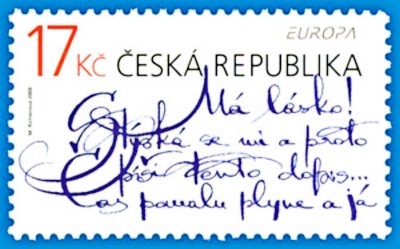 17 Kč ČESKÁ REPUBLIKA EUROPA
M. Richterová 2008
Má lásko!
Stýská se mi a proto
píši tento dopis...
Čas pomalu plyne a já